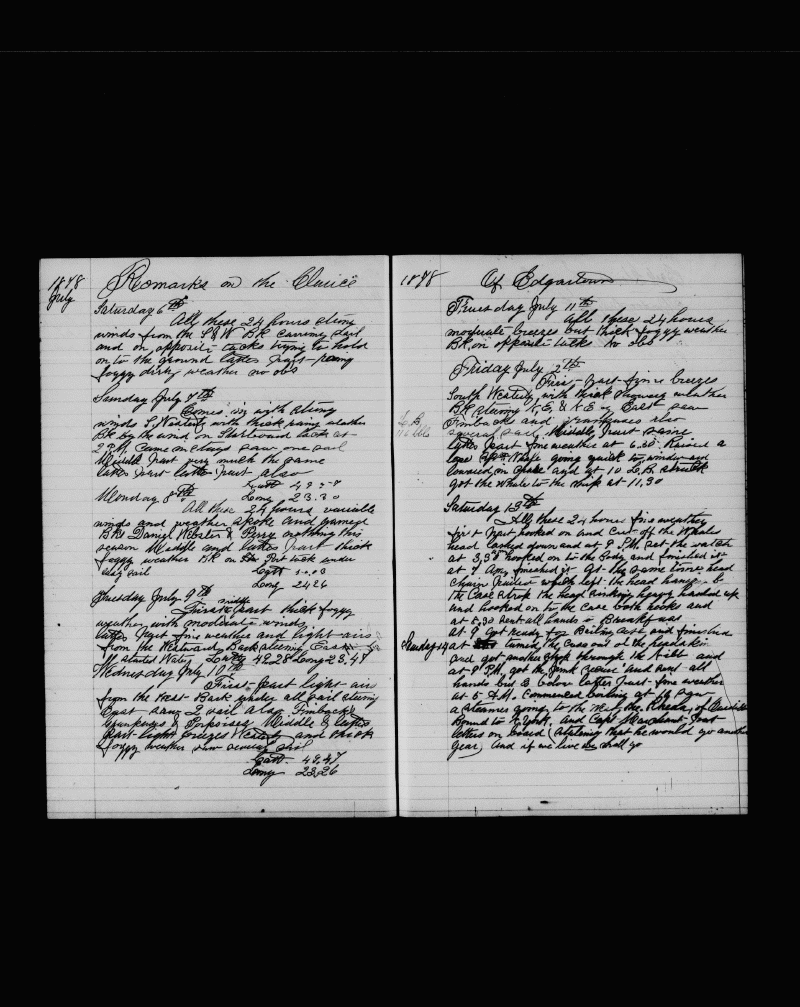 1878 Remarks on the Clarice
July
Saturday 6th
All these 24 hours strong
winds from the S & W Bk carrying sail
and on opposite tacks trying to hold
on to the ground latter part
foggy dirty weather no obs
Sunday July 7th
Comes in with strong
winds S Westerly with thick rainy weather
Bk by the wind on Starboard tack at
2 P.M. Came in Clouds saw one sail
Middle Part very much the same
latter Part latter Part also
Latt 49
Monday 8th Long 23.30
All these 24 hours variable
winds and weather spoke and gamed
Bks Daniel Webster & Perry nothing this
season Middle and latter Part thick
foggy weather Bk on the Port tack under
easy sail Latt
Long 24 26
Tuesday July 9th
First middle part thick foggy
weather with moderate winds
latter Part fine weather and light airs
from the Westward Bark steering East
started Water Latt 48.28 Long 23.47
Wednesday July 10th
First Part light air
from the West Bark under all sail steering
East saw 2 sail also Finbacks
Grampuses & Porpoises Middle & latter
Part light breezes Westerly and thick
foggy weather saw several sail
Latt 49.47
Long 23.26
1878 Of Edgartown
Thursday July 11th
All these 24 hours
moderate breezes but thick foggy weather
Bk on opposite tacks no obs
Friday July 12th
First Part fine breezes
South Westerly with thick weather
Bk steering N.E. & E saw
Finbacks and Grampuses also
several sail Middle Part same
latter Part fine weather at 6.30 Raised a
lone Whale going quick to windward
lowered in chase and at 10 L.B. struck
got the Whale to the ship at 11.30
Saturday 13th
All these 24 hours fine weather
first Part hooked on and Cut off the Whales
head land down and at 8 P.M. set the watch
at 3,30 hooked on to the Body and finished it
at 9 Am finished it at the same time head
chain Parted left the head hang by
the Case strap the head sinking heavy hauled up
and hooked on to the Case both hooks and
at 5.30 sent all hands to Breakfast
at 9 got ready for Boiling and finished
Sunday 14 at turned the Case out of the
and got another strap through the and
at 9 P.M. got the Junk and sent all
hands but 3 below latter Part fine weather
at 5 A.M. Commenced boiling at 10 Spoke
a steamer going to the West the Rhein of
Bound to N York, and Capt Marchant Put
letters on board (stating that he would go another
year) and if we live shall go